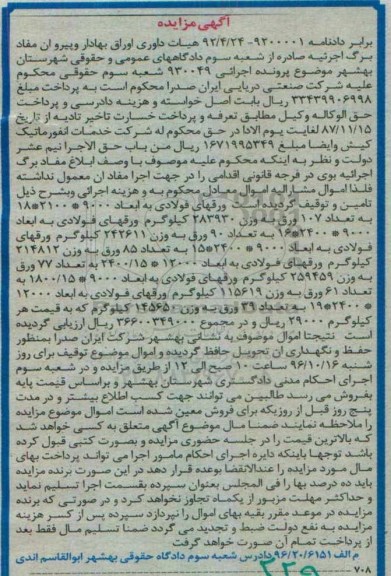 آگهی مزایده
برابر دادنامه ۹۲۰۰۰۰۱-۹۲/۴/۲۴ هیات داوری اوراق بهادار و پیرو آن مفاد
برگ اجرئیه صادره از شعبه سوم دادگاههای عمومی و حقوقی شهرستان
بهشهر موضوع پرونده اجرائی ۹۳۰۰۴۹ شعبه سوم حقوقی محکوم
علیه شرکت صنعتی دریایی ایران صدرا محکوم است به پرداخت مبلغ
۳۳۴۳۹۹۰۶۹۹۸ ریال بابت اصل خواسته و هزینه دادرسی و پرداخت
حق الوکاله وکیل مطابق تعرفه و پرداخت خسارت تاخیر تادیه از تاریخ
۸۷/۱۱/۱۵ لغایت یوم الادا در حق محکوم له شرکت خدمات انفورماتیک
کیش وایضا مبلغ ۱۶۷۱۹۹۵۳۴۹ ریال من باب حق الاجرا نیم عشر
دولت و نظر به اینکه محکوم علیه موصوف با وصف ابلاغ مفاد برگ
اجرائیه بوی در فرجه قانونی اقدامی را در جهت اجرا مفاد ان معمول نداشته
فلذا اموال مشارالیه اموال معادل محکوم به و هزینه اجرائی وبشرح ذیل
تامین و توقیف گردیده که ورقهای فولادی به ابعاد ۹۰۰۰ * ۲۱۰۰*۱۸
به تعداد ۱۰۷ ورق به وزن ۲۸۳۹۳۰ کیلوگرم ورقهای فولادی به ابعاد
۹۰۰۰ * ۲۴۰۰*۱۶ به تعداد ۹۰ ورق به وزن ۲۴۲۶۱۱ کیلوگرم ورقهای
فولادی به ابعاد ۹۰۰۰ * ۲۴۰۰*۱۵ به تعداد ۸۵ ورق به وزن ۲۱۴۸۱۲
کیلوگرم ورقهای فولادی به ابعاد ۱۲۰۰۰ * ۲۴۰۰/۱۵ به تعداد ۷۷ ورق
به وزن ۲۵۹۴۵۹ کیلوگرم ورقهای فولادی به ابعاد ۹۰۰۰ * ۱۸۰۰/۱۵ به
تعداد ۶۱ ورق به وزن ۱۱۵۶۱۹ کیلوگرم ورقهای فولادی به ابعاد ۱۲۰۰۰
* ۲۴۰۰*۱۹ به تعداد ۳۹ ورق به وزن ۱۴۵۶۵۰ کیلوگرم که به قیمت هر
کیلوگرم ۲۹۰۰۰ ریال و در مجموع ۳۶۶۰۰۳۴۹۰۰۰ ریال ارزیابی گردیده
است نتیجتا اموال موصوف به نشانی بهشهر شرکت ایران صدرا بمنظور
حفظ و نگهداری ان تحویل حافظ گردیده و اموال موضوع توقیف برای روز
شنبه ۹۶/۱۰/۱۶ ساعت ۱۰ صبح الی ۱۲ از طریق مزایده و در شعبه سوم
اجرای احکام مدنی دادگستری شهرستان بهشهر و براساس قیمت پایه
بفروش می رسد طالبین می توانند جهت کسب اطلاع بیشتر و در مدت
پنج روز قبل از روزیکه برای فروش معین شده است اموال موضوع مزایده
را ملاحظه نمایند ضمنا مال موضوع آگهی متعلق به کسی خواهد شد
که بالاترین قیمت را در جلسه حضوری مزایده و بصورت کتبی قبول کرده
باشد توجها باینکه دایره اجرای احکام مامور اجرا می تواند پرداخت بهای
مال مورد مزایده را عندالاقتضا بوعده قرار دهد در این صورت برنده مزایده
باید ده درصد بها را فی المجلس بعنوان سپرده بقسمت اجرا تسلیم نماید
و حداکثر مهلت مزبور از یکماه تجاوز نخواهد کرد و در صورتی که برنده
مزایده در موعد مقرر بقیه بهای اموال را نپردازد سپرده پس از کسر هزینه
مزایده به نفع دولت ضبط و تجدید می گردد ضمنا تسلیم مال فقط بعد
از پرداخت تمام آن صورت خواهد گرفت
م الف ۹۶/۲۰/۶۱۵۱ دادرس شعبه سوم دادگاه حقوقی بهشهر ابوالقاسم اندی
۷۰۸